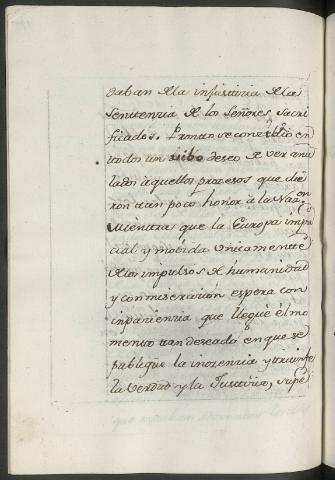 daban de la injusticia de la
Sentenzia de los Señores, sacri
ficados. Pronto se conerdió en
todos un vibo deseo de ver anu
lados à aquellos prozesos que die
ron tan poco honor à la Naz.on
Mientras que la Europa impar
cial y mobida unicamente
de los impulsos de humanidad
y conmiserazion espera con
inpazienzia que llegùe el mo
mento tan deseado en que se
publique la inozenzia y triunfe
la verdad y la Justizia, supe